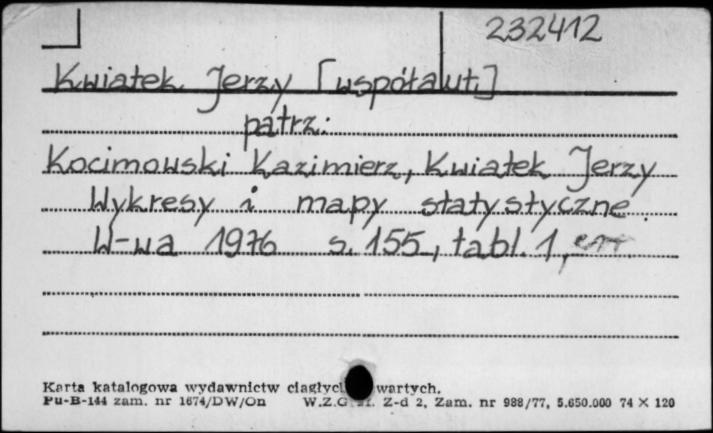 232412
Kwiatek Jerzy [współaut.]
patrz:
Kocimowski Kazimierz, Kwiatek Jerzy
Wykresy i mapy statystyczne.
W-wa 1976 s. 155, tabl. 1, err.
Karta katalogowa wydawnictw ciągłych wartych.
Pu-B-144 zam. nr 1674/DW/On W.Z.G Z-d 2, Zam. nr 988/77, 5.650.000 74 × 120